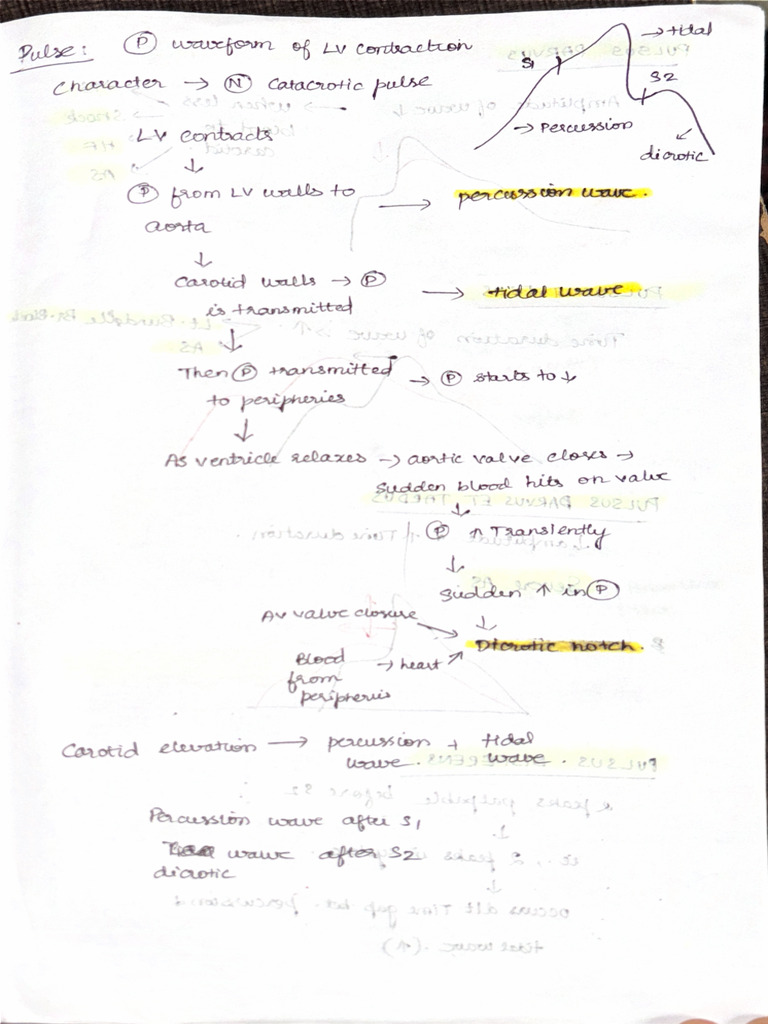 Pulse: Ⓟ waveform of LV contraction
Character → Ⓝ catacrotic pulse
→ tidal
S1
S2
→ Percussion
dicrotic
LV contracts
↓
Ⓟ from LV walls to → percussion wave.
aorta
↓
Carotid walls → Ⓟ → tidal wave
is transmitted
↓
Then Ⓟ transmitted → Ⓟ starts to ↓
to peripheries
↓
As ventricle relaxes → aortic valve closes →
sudden blood hits on valve
↓
Ⓟ ↑ Transiently
↓
Sudden ↑ in Ⓟ
↓
AV valve closure → Dicrotic notch.
Blood → heart ↗
from
peripheries
Carotid elevation → percussion + tidal
wave. wave.
Percussion wave after S1
wave after S2
dicrotic